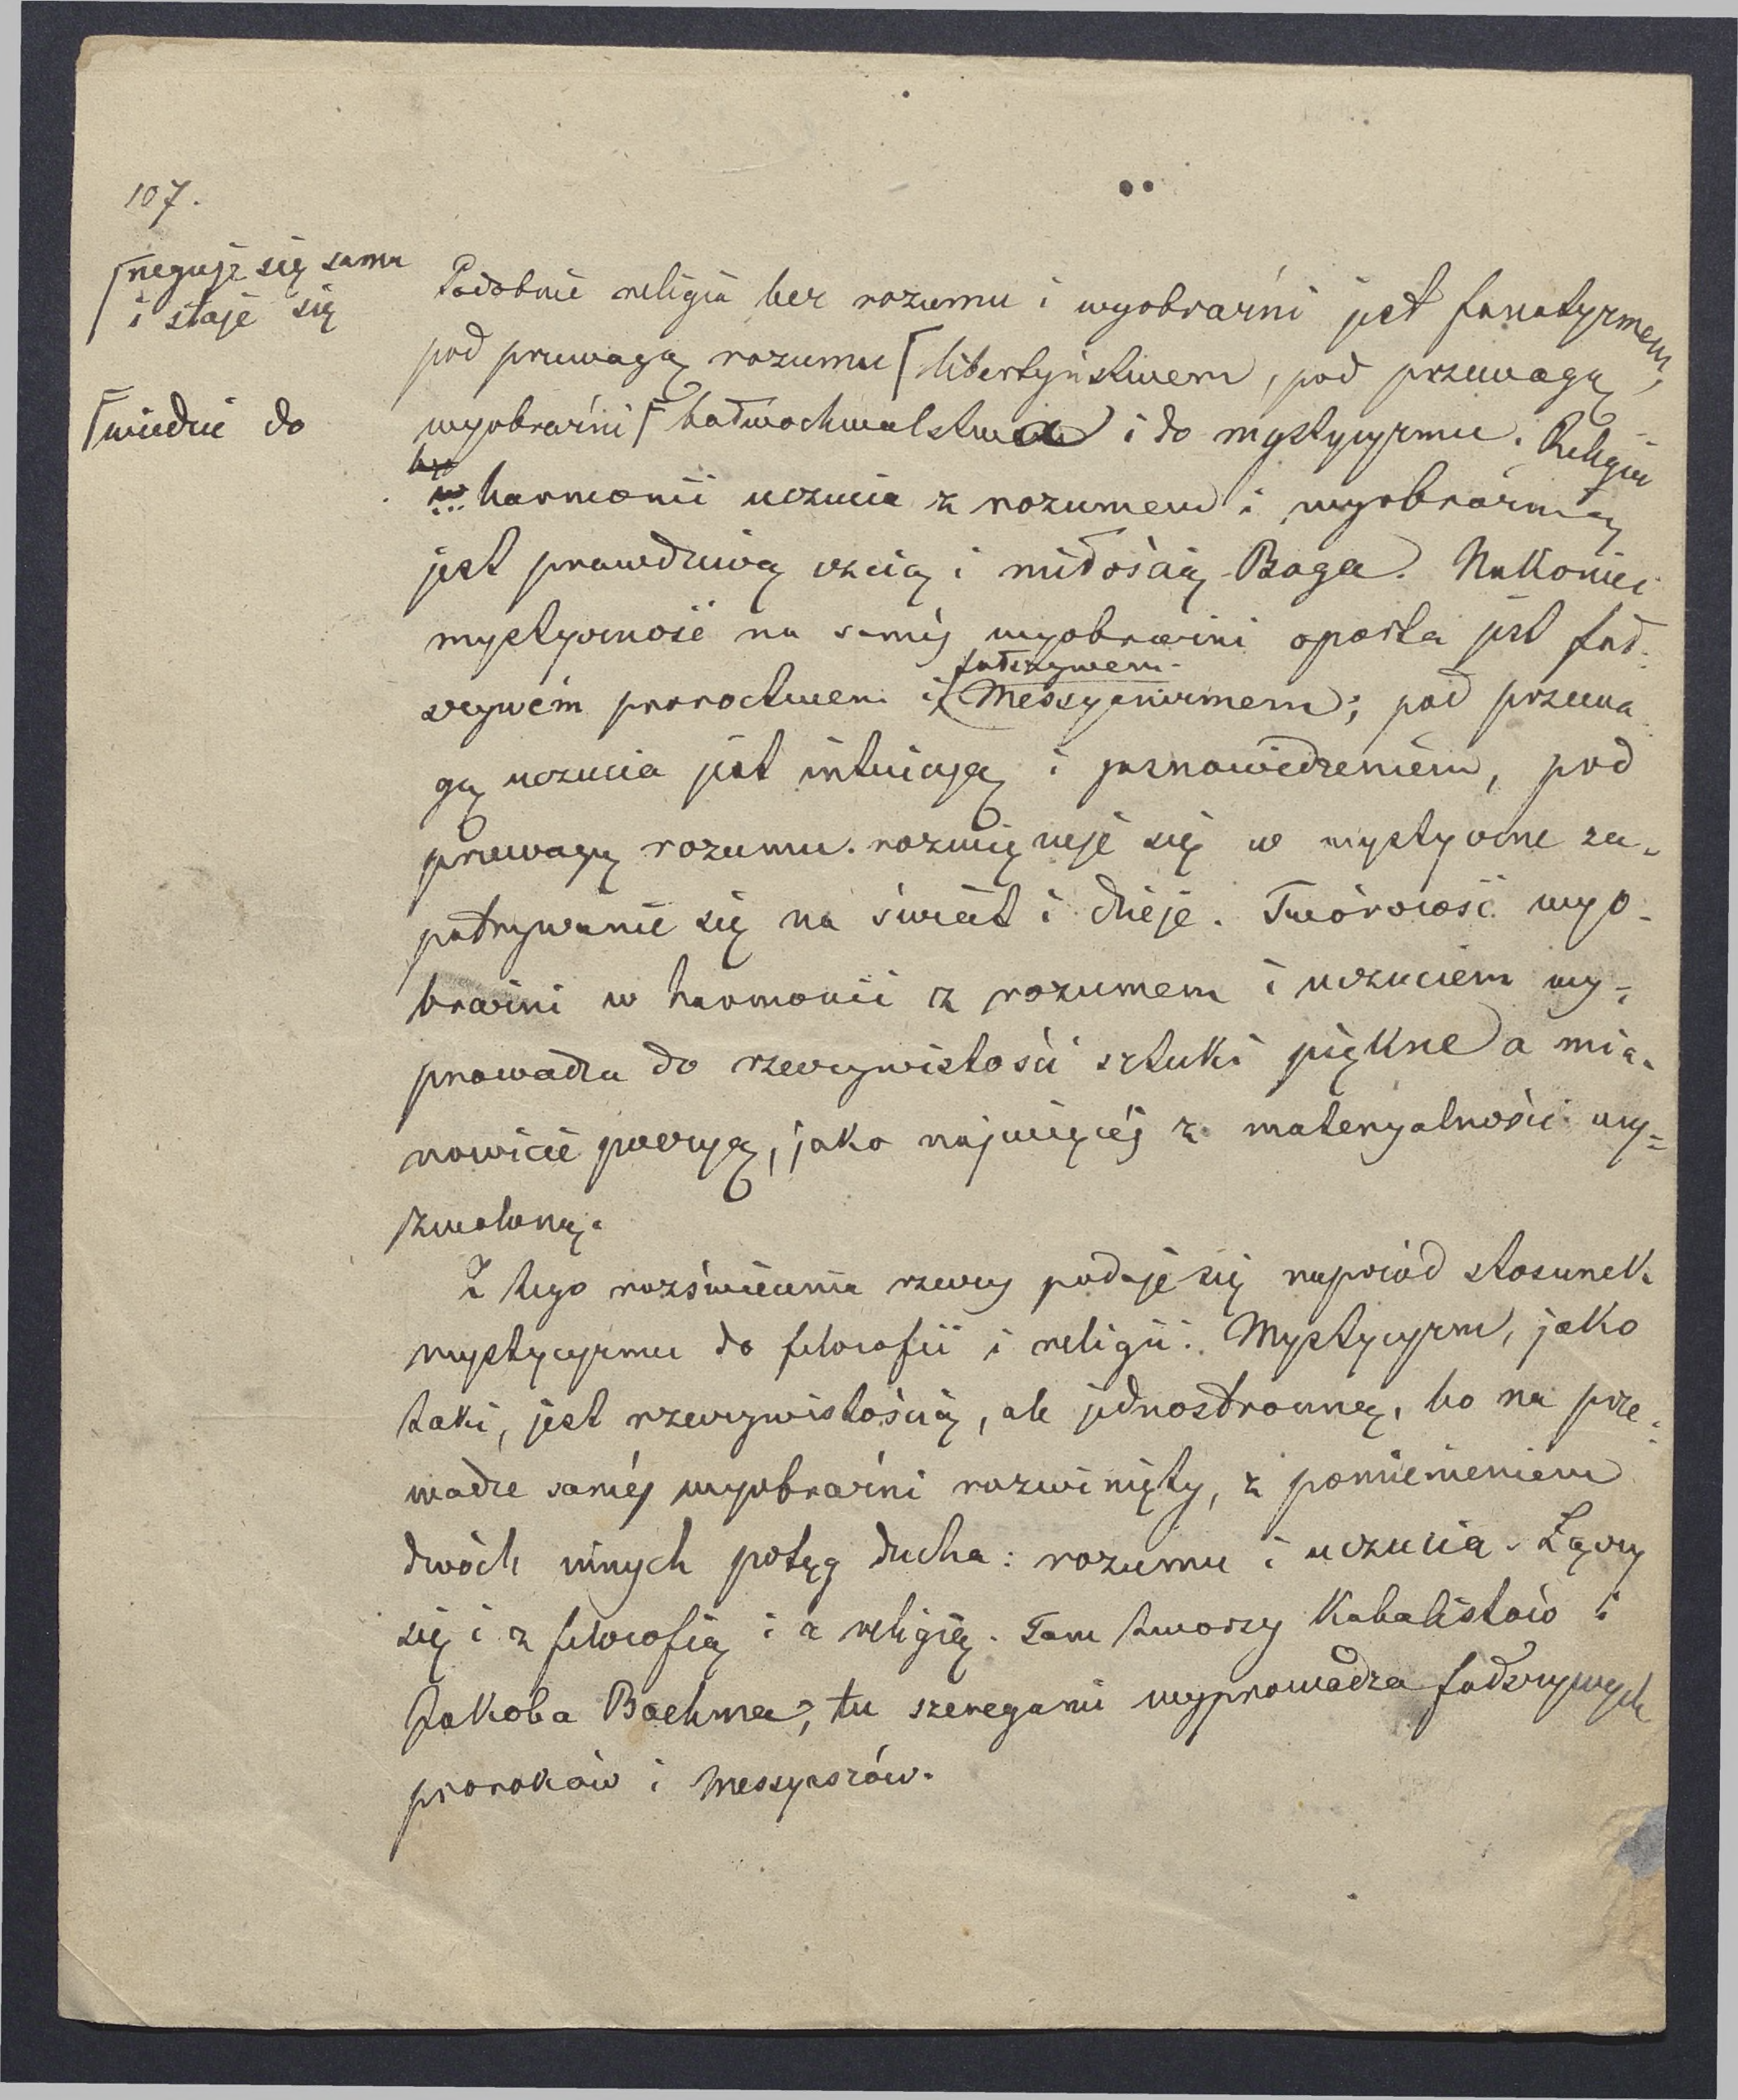 107.
⌈neguje się sama
i staje się
Podobnie religia bez rozumu i wyobraźni jest fanatyzmem,
pod przewagą rozumu ⌈libertyństwem, pod przewagą
⌈wiedzie do
wyobraźni ⌈bałwochwalstwa i do mystycyzmu. Religia
w harmonii uczucia z rozumem i wyobraźnią
jest prawdziwą czcią i miłością Boga. Nakoniec
mystyczność na saméj wyobraźni oparta jest fał-
szywém proroctwem i fałszywem Messyanizmem; pod przewa-
gą uczucia jest intuicyą i jasnowidzeniem, pod
przewagą rozumu rozwięzuje się w mystyczne za-
patrywanie się na świat i dzieje. Twórczość wyo-
braźni w harmonii z rozumem i uczuciem wy-
prowadza do rzeczywistości sztuki piękne a mia-
nowicie poezyą, jako najwięcéj z materyalności wy-
zwoloną.
Z tego rozświecenia rzeczy podaje się naprzód stosunek
mystycyzmu do filozofii i religii. Mystycyzm, jako
taki, jest rzeczywistością, ale jednostronną, bo na prze-
wadze saméj wyobraźni rozwinięty, z pominieniem
dwóch innych potęg ducha: rozumu i uczucia. Łączy
się i z filozofią i z religią. Tam tworzy Kabalistów i
Jakoba Boehma, tu szeregami wyprowadza fałszywych
proroków i Messyaszów.